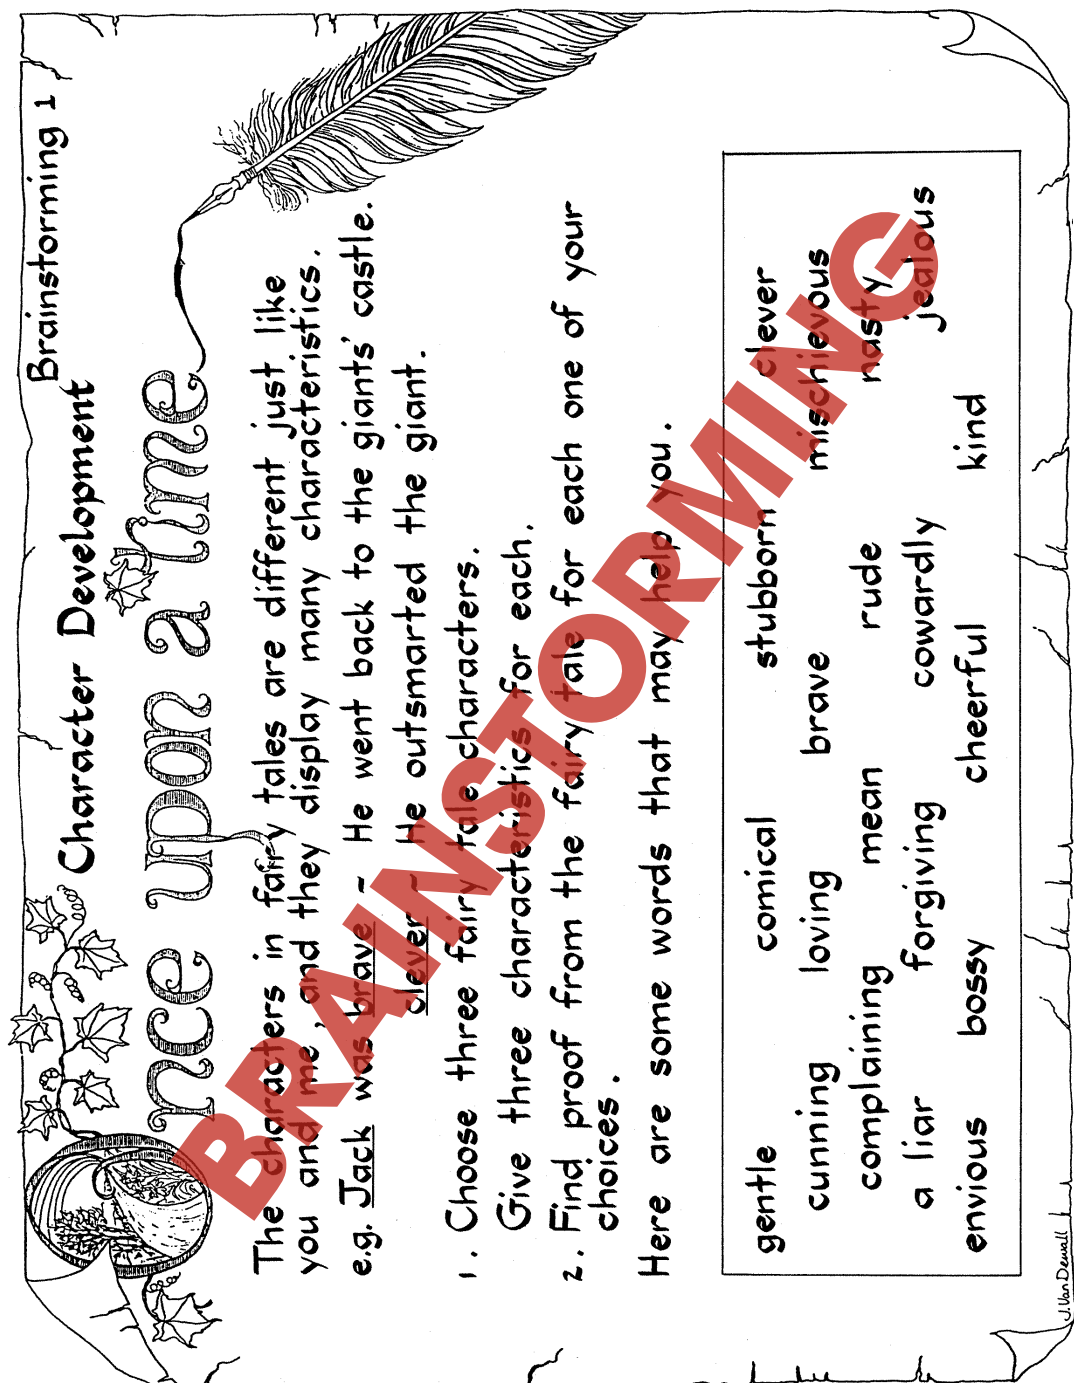 Brainstorming 1
Character Development
Once upon a time
The characters in fairy tales are different just like
you and me, and they display many characteristics.
e.g. Jack was brave ~ He went back to the giants' castle.
clever ~ He outsmarted the giant.
1. Choose three fairy tale characters.
Give three characteristics for each.
2. Find proof from the fairy tale for each one of your
choices.
Here are some words that may help you.
gentle comical stubborn clever
cunning loving brave mischievous
complaining mean rude nasty
a liar forgiving cowardly jealous
envious bossy cheerful kind
J. Van Dewall
BRAINSTORMING